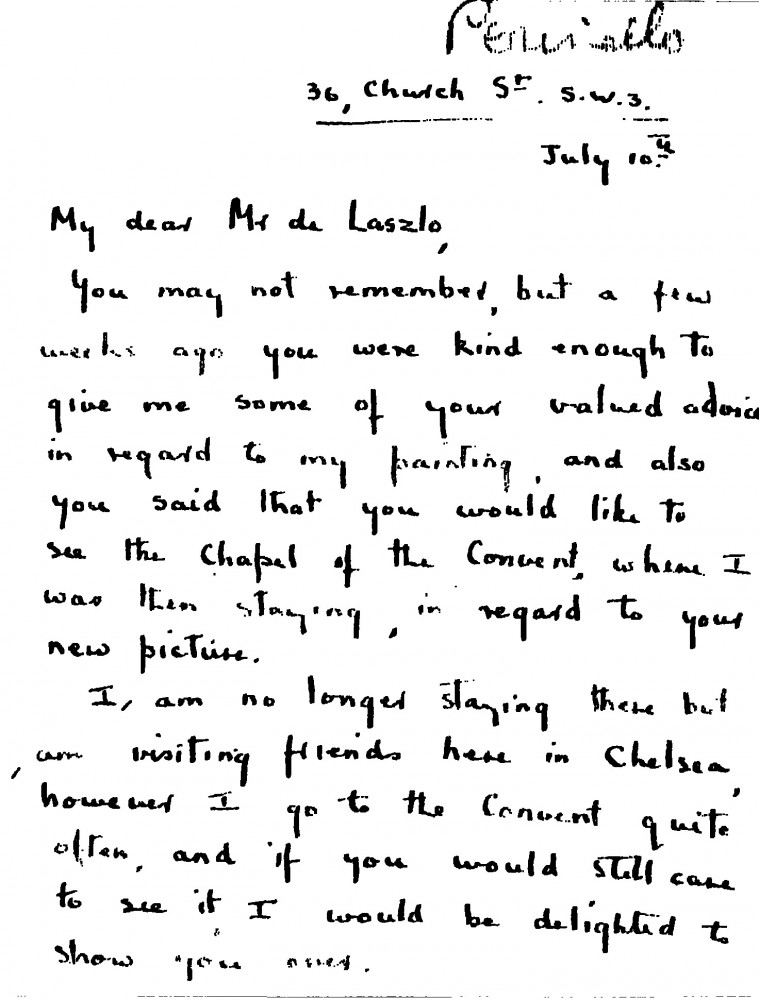 36, Church St. S.W.3.
July 10th
My dear Mr de Laszlo,
You may not remember, but a few
weeks ago you were kind enough to
give me some of your valued advice
in regard to my painting, and also
you said that you would like to
see the Chapel of the Convent, where I
was then staying, in regard to your
new picture.
I, am no longer staying there but
, am visiting friends here in Chelsea,
however I go to the Convent quite
often, and if you would still care
to see it I would be delighted to
show you over.